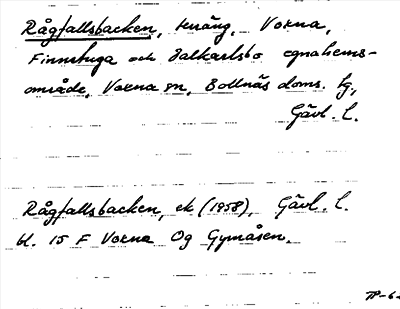 Rågfallsbacken, kuäng, Voxna,
Finnstuga och Dalkarlsbo egnahems-
område, Voxna sn, Bollnäs doms. tg,
Gävl. l.
Rågfallsbacken, ek (1958), Gävl. l.
bl. 15 F Voxna Og Gymåsen.